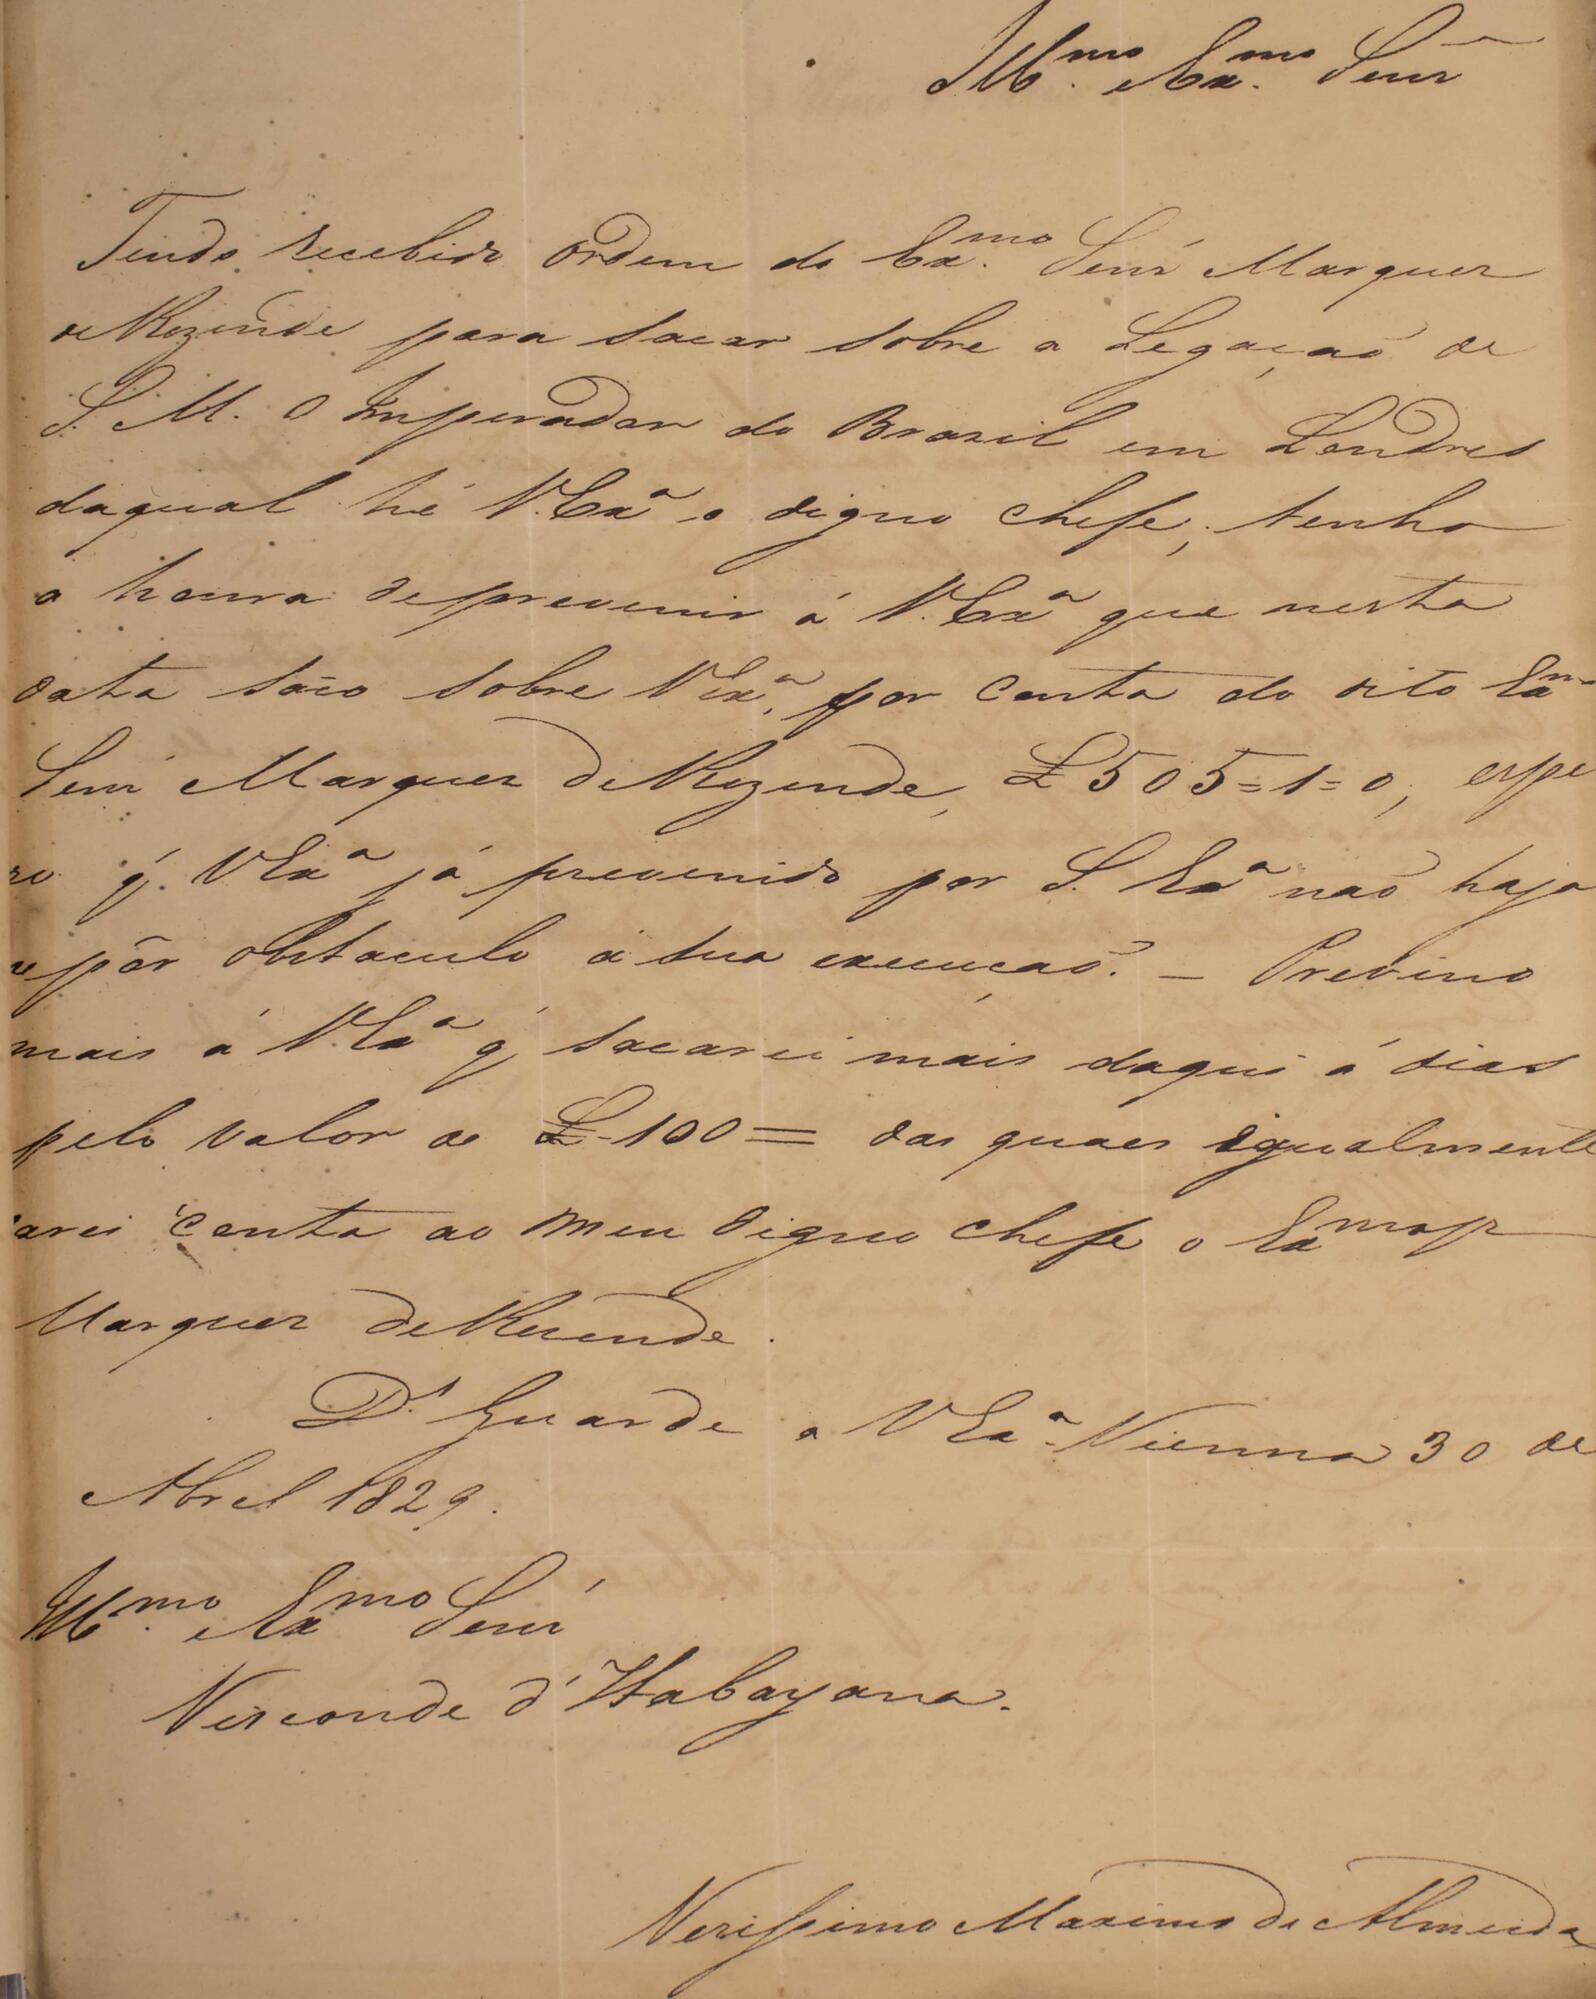 Ill.mo e Ex.mo Senr
Tendo recebido ordem do Ex.mo Senr Marquez
de Rezende para sacar sobre a Legação de
S. M. O Imperador do Brazil em Londres
daqual hé V. Exa o digno chefe, tenho
a honra de prevenir á V. Exa que nesta
data saco sobre V Exa, por conta do dito Exmo
Senr Marquez de Rezende, £ 505=1=0, espe
ro q. V Exa já prevenido por S. Exa não haja
de pôr obstaculo á sua execução. — Previno
mais á V. Exa q' sacarei mais daqui á dias
pelo valor de £-100= das quaes igualmente
darei conta ao meu digno chefe o Exmo Sr
Marquez de Rezende.
D.s Guarde a V Exa. Vienna 30 de
Abril 1829.
Ill.mo e Exmo Senr
Visconde d'Itabayana.
Verissimo Maximo de Almeida